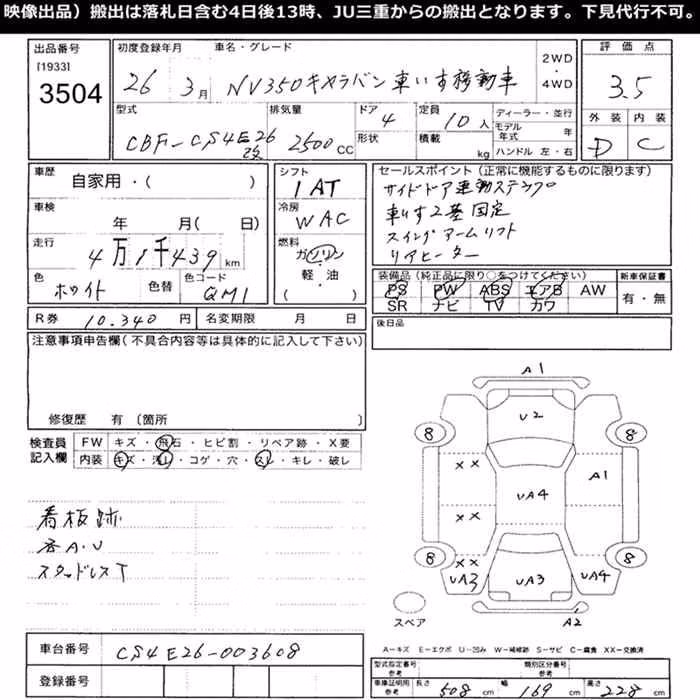 映像出品）搬出は落札日含む4日後13時、JU三重からの搬出となります。下見代行不可。
出品番号
[1933]
3504
初度登録年月
26 3月
車名・グレード
NV350キャラバン 車いす移動車
2WD・4WD
評価点
3.5
外装 内装
D C
型式
CBF-CS4E26改
排気量
2500CC
ドア
4
形状
定員
10人
積載
kg
ディーラー・並行
モデル年式 年
ハンドル 左・右
車歴
自家用・( )
車検
年 月( 日)
走行
4万1千439km
色
ホワイト
色替
色コード
QM1
シフト
IAT
冷房
WAC
燃料
ガソリン・軽・油
( )
セールスポイント（正常に機能するものに限ります）
サイドドア電動ステップ
車いす2基固定
スイングアームリフト
リアヒーター
装備品（純正品に限り○をつけてください）
PS PW ABS エアB AW
SR ナビ TV カワ
新車保証書
有・無
R券 10.340円
名変期限 月 日
後日品
注意事項申告欄（不具合内容等は具体的に記入して下さい）
修復歴 有〔箇所
検査員記入欄
FW キズ・飛石・ヒビ割・リペア跡・X要
内装 キズ・汚れ・コゲ・穴・スレ・キレ・破レ
看板跡
各A.U
スタッドレスT
A1
U2
8 8
XX
A1
UA4
XX
8 8
XX
UA3 UA3 UA4
スペア
A2
A-キズ E-エクボ U-凹み W-補修跡 S-サビ C-腐食 XX-交換済
車台番号
CS4E26-003608
登録番号
型式指定番号 参考
類別区分番号
車庫証明用 参考
長さ 508cm
幅 169cm
高さ 228cm